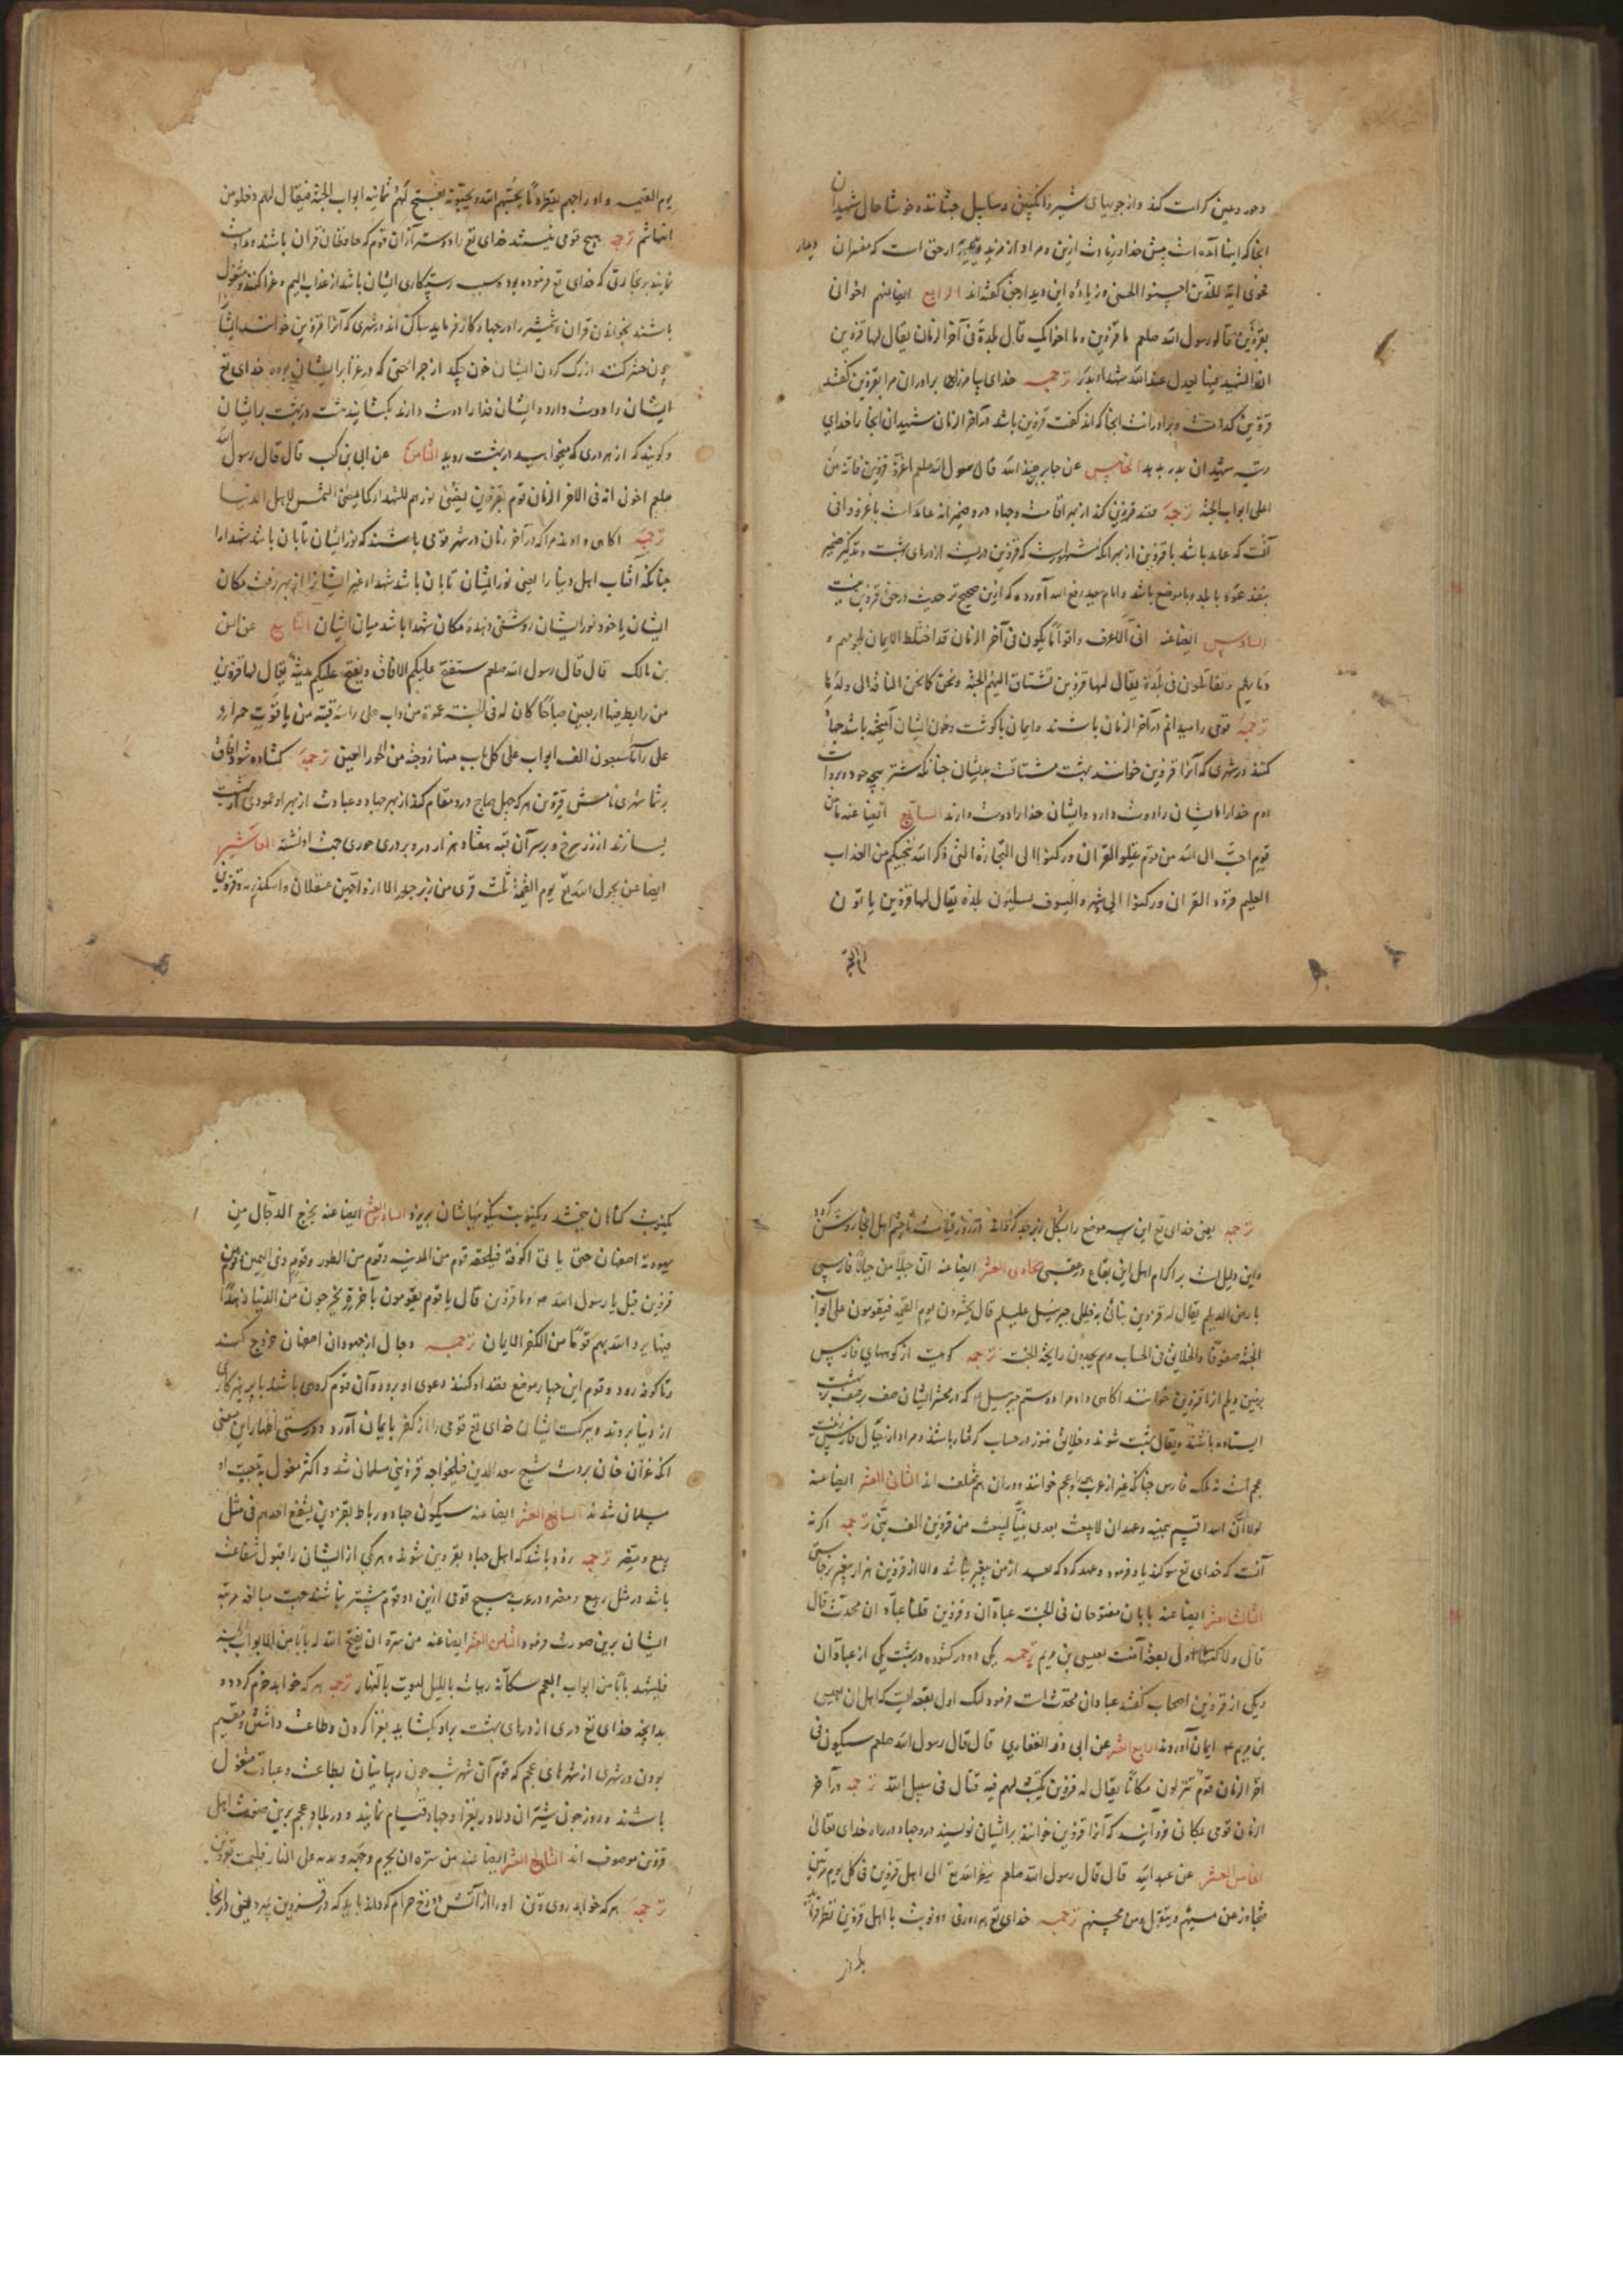 وحور وعین کرامت کند واز جویهای شیر وانگبین وسلسبیل چشانند خوشا حال شهیدان
آنجا که اینها آمده است پیش خدا وزیادت ازین ومراد از مزید حق است که مفسران
فحوی آیه للذین احسنوا الحسنی وزیادة این دیدار حق گفته‌اند الرابع ایضا منهم اخوان
بقزوین قالو رسول الله صلعم ما قزوین وما اخوانک قال بلدة فی آخر الزمان یقال لها قزوین
ان الشهید فیها یعدل عند الله شهداء بدر ترجمه خدای با برادران مرا بقزوین گفتند
قزوین کدامست وبرادرانت آنجا که‌اند گفت قزوین باشد در آخر الزمان شهیدان آنجا را خدای
رتبه شهیدان بدر بدهد الخامس عن جابر بن عبد الله قال رسول الله صلعم اغزوا قزوین فانه من
اعلی ابواب الجنة ترجمه قزوین کند از بهر اقامت وجهاد
آنست که عاید باشد با قزوین از بهر آنکه که قزوین دریست از درهای بهشت وتذکیر ضمیر
با بلد وبا موضع باشد وامام آورده که ازین صحیح‌تر حدیث در حق قزوین نیست
السادس ایضا عنه انی لاعرف اقواما یکون فی آخر الزمان قد اختلط الایمان بلحومهم و
دمایهم ویقاتلون فی بلدة یقال لها قزوین تشتاق الیهم الجنة وتحن کما تحن الناقة الی ولدها
ترجمه قومی را میدانم در آخر الزمان باشند وایمان با گوشت وخون ایشان آمیخته باشد
کنند در شهری که آنرا قزوین خوانند بهشت مشتاقست بدیشان چنانکه شتر ببچه خود
خدا ایشان را دوست دارد وایشان خدا را دوست دارند السابع ایضا عنه ما من
قوم احب الی الله من قوم حملو القرآن ورکبوا الی التجارة التی ذکر الله تنجیکم من العذاب
الالیم قرؤ القرآن ورکبوا الی والسیوف یسکنون بلدة یقال لها قزوین یاتون
یوم القیمه واوداجهم یقطر دما یحبهم الله ویحبونه یفتح لهم ثمانیه ابواب الجنة فیقال لهم ادخلو من
ایها شئتم ترجمه هیچ قومی نیستند خدای تع را دوستر از آن قوم که حافظان قرآن باشند
نمایند بر تجارتی که خدای تع فرموده بود وسبب رستگاری ایشان باشد از عذاب الیم وغزا کنند ومشغول
باشند بخواندن قرآن وشمشیر را در جهاد کار فرماید ساکن اند در شهری که آنرا قزوین خوانند ایشانرا
چون حشر کنند از رگ گردن ایشان خون چکد از جراحتی که در غزا بر ایشان بوده خدای تع
ایشان را دوست دارد وایشان خدا را دوست دارند بگشایند هشت در بهشت بر ایشان
وگویند که از هر دری که میخواهید در بهشت روید الثامن عن ابی بن کعب قال قال رسول الله
صلعم اخوانی فی الاخر الزمان قوم بقزوین یضیئ نورهم للشهداء کما یضیئ الشمس لاهل الدنیا
ترجمه آگاهی دادند مرا که در آخر زمان در شهر قومی باشند که نور ایشان تابان باشد شهدا را
چنانکه آفتاب اهل دنیا را یعنی نور ایشان تابان باشد شهدا وغیر ایشانرا از بهر رفعت مکان
ایشان یا خود نور ایشان روشنی دهنده مکان شهدا باشد میان ایشان التاسع عن انس
بن مالک قال قال رسول الله صلعم ستفتح علیکم الافاق ویفتح علیکم مدینة یقال لها قزوین
من رابط فیها اربعین صباحا کان له فی الجنة عمود من ذهب علی راسه قبة من یاقوت حمراء و
علی راسها سبعون الف ابواب علی کل باب منها زوجة من الحور العین ترجمه گشاده شود آفاق
بر شما شهری نامش قزوین هر که چهل صباح درو مقام کند از بهر جهاد وعبادت از بهر او عمودی در بهشت
بسازند از زر سرخ وبر سر آن قبه هفتاد هزار در وبر دری حوری جفت او نشسته العاشر
ایضا عن یحول الله تع یوم القیمة ثلث قری من زبرجد الی ازواجهن عسقلان واسکندریه وقزوین
ترجمه یعنی خدای تع این سه موضع را بشکل زبرجد گرداند ودر روز قیامت تا چشم اهل آنجا روشن گردد
واین دلیل است بر اکرام اهل این بقاع در عقبی الحادی العشر ایضا عنه ان جبلا من جبال فارس
بارض الدیلم یقال له قزوین نبأنی به خلیلی جبرئیل علیه السلام قال یحشرون یوم القیمة فیقومون علی ابواب
الجنة صفوفا والخلایق فی الحساب وهم یجدون رایحة الجنة ترجمه کوهیست از کوههای فارس
بزمین دیلم آنرا قزوین خوانند آگاهی داد مرا دوستم جبرئیل که در محشر ایشان صف صف بر در بهشت
ایستاده باشند وخلایق هنوز در حساب گرفتار باشند ومراد از جبال فارس زمین
عجم است نه ملک فارس چنانکه غیر از عرب را عجم خوانند ودر آن هم مختلف اند الثانی العشر ایضا عنه
لولا ان الله اقسم بیمینه وعهد ان لا یبعث بعدی نبیا لبعث من قزوین الف نبی ترجمه اگر نه
آنست که خدای تع سوگند یاد فرمود وعهد کرد که بعد از من پیغمبر نباشد والا از قزوین هزار پیغمبر برخاستی
الثالث العشر ایضا عنه بابان مفتوحان فی الجنة عبادان وقزوین قلنا عبادان محدث قال
قال ولکنها اول بقعة آمنت بعیسی بن مریم ترجمه یکی دو در گشوده در بهشت یکی از عبادان
ویکی از قزوین اصحاب گفتند عبادان محدث است فرمود لیک اول بقعه ایست که اهل آن بعیسی
بن مریم ع ایمان آوردند الرابع العشر عن ابی ذر الغفاری قال قال رسول الله صلعم سیکون فی
آخر الزمان قوم ینزلون مکانا یقال له قزوین یکتب لهم فیه قتال فی سبیل الله ترجمه در آخر
الزمان قومی بمکانی فرو آیند که آنرا قزوین خوانند بر ایشان نویسند درو جهاد در راه خدای تعالی
الخامس العشر عن عبد الله قال قال رسول الله صلعم ینظر الله تع الی اهل قزوین فی کل یوم مرتین
فیتجاوز عن مسیئهم ویتقبل من محسنهم ترجمه خدای تع هر روزی دو نوبت با اهل قزوین نظر فرماید
یکنوبت گناهان ببخشد ویکنوبت نیکوییهاشان بپذیرد السادس العشر ایضا عنه یخرج الدجال من
یهودیة اصفهان حتی یاتی الکوفة فیلحقه قوم من المدینه وقوم من الطور وقوم ذی الیمن وقوم من
قزوین قیل یا رسول الله وما قزوین قال یا قوم یقومون باخرة یخرجون من الدنیا زهدا
فیها یرد الله بهم قوما من الکفر الی الایمان ترجمه دجال از جهودان اصفهان خروج کند
وتا کوفه رود وقوم این چهار موضع قصد او کنند ودعوی او برود وآن قوم گروهی باشند با پرهیزگاری
از دنیا بروند وببرکت ایشان خدای تع قومی را از کفر بایمان آورد ودرستی اظهار این معنی
آنکه غازان خان بر دست شیخ سعد الدین قتلغ خواجه قزوینی مسلمان شد واکثر مغول به تبعیت او
مسلمان شدند السابع العشر ایضا عنه سیکون جهاد ورباط بقزوین یشفع احدهم فی مثل
ربیع ومضر ترجمه زود باشد که اهل جهاد بقزوین شوند وهر یکی از ایشان را قبول شفاعت
باشد در مثل ربیع ومضر ودر عرب هیچ قومی ازین دو قوم بیشتر نباشند جهت مبالغه مرتبه
ایشان برین صورت فرمود الثامن العشر ایضا عنه من سره ان یفتح الله له بابا من ابواب الجنة
فلیشهد بابا من ابواب العجم سکانه رهبان باللیل لیوث بالنهار ترجمه هر که خواهد خرم گردد
بدانچه خدای تع دری از درهای بهشت برو بگشاید بغزا کردن وطاعت داشتن ومقیم
بودن در شهری از شهرهای عجم که قوم آن شهر شب چون رهبانیان بطاعت وعبادت مشغول
باشند وروز چون شیران دلاور بغزا وجهاد قیام نمایند ودر بلاد عجم برین صفت اهل
قزوین موصوف اند التاسع العشر ایضا عنه من سره ان یحرم وجهه وبدنه علی النار فلیمت بقزوین
ترجمه هر که خواهد روی وتن او را از آتش دوزخ حرام گرداند باید که در قزوین میرد یعنی در آنجا